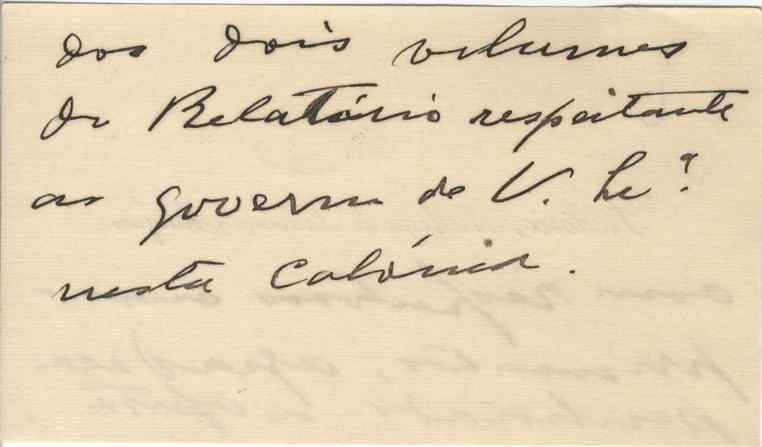 dos dois volumes
do Relatório respeitante
ao governo de V. Ex.ª
nesta Colónia.